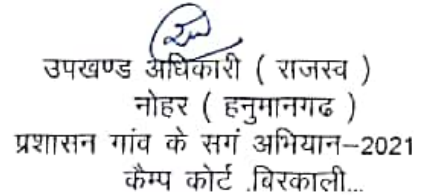 उपखण्ड अधिकारी ( राजस्व )
नोहर ( हनुमानगढ )
प्रशासन गांव के सगं अभियान–2021
कैम्प कोर्ट .बिरकाली...